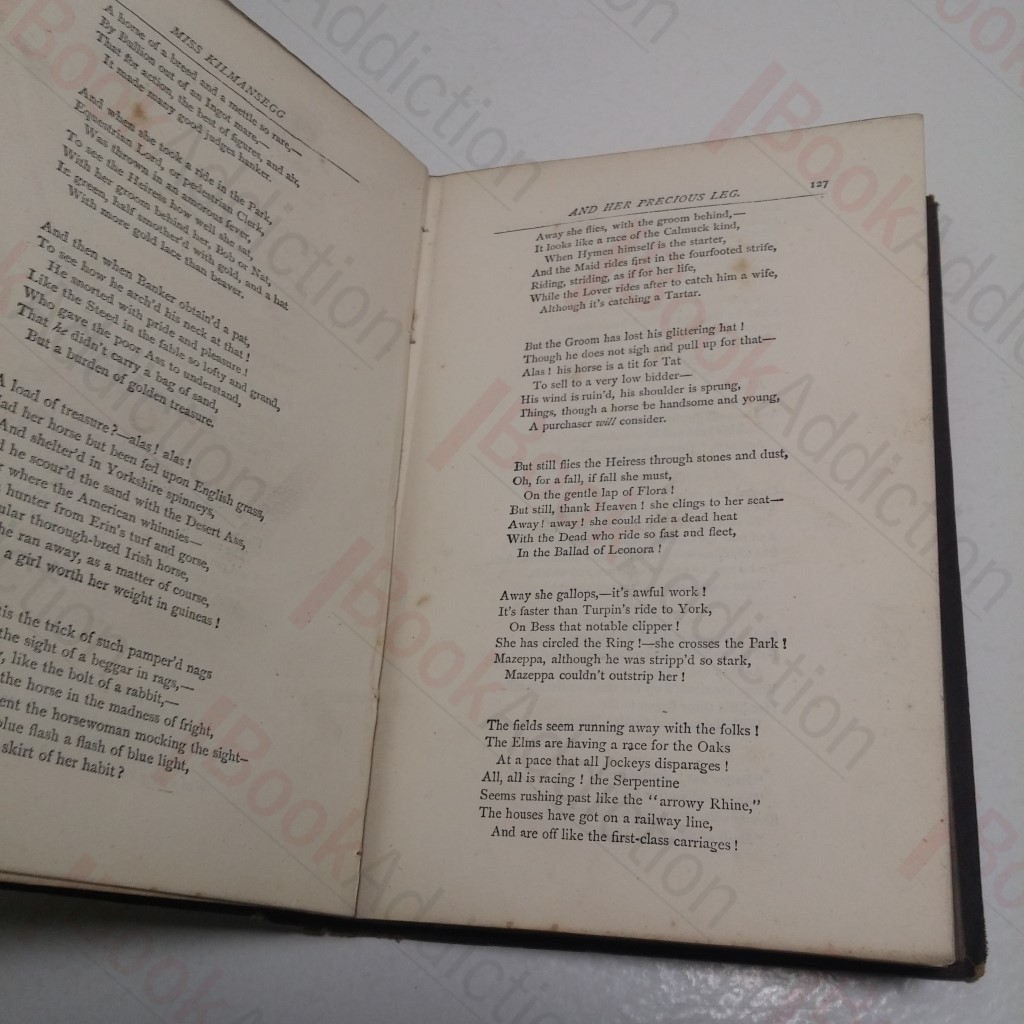 MISS KILMANSEGG
A horse of a breed and a mettle so rare,—
By Bullion out of an Ingot mare,—
That for action, the best of figures, and air,
It made many good judges hanker.
And when she took a ride in the Park,
Equestrian Lord, or pedestrian Clerk,
Was thrown in an amorous fever,
To see the Heiress how well she sat,
With her groom behind her, Bob or Nat,
In green, half smother'd with gold, and a hat
With more gold lace than beaver.
And then when Banker obtain'd a pat,
To see how he arch'd his neck at that!
He snorted with pride and pleasure!
Like the Steed in the fable so lofty and grand,
Who gave the poor Ass to understand,
That he didn't carry a bag of sand,
But a burden of golden treasure.
A load of treasure?—alas! alas!
Had her horse but been fed upon English grass,
And shelter'd in Yorkshire spinneys,
he scour'd the sand with the Desert Ass,
where the American whinnies—
hunter from Erin's turf and gorse,
thorough-bred Irish horse,
he ran away, as a matter of course,
a girl worth her weight in guineas!
is the trick of such pamper'd nags
the sight of a beggar in rags,—
like the bolt of a rabbit,—
the horse in the madness of fright,
the horsewoman mocking the sight—
flash a flash of blue light,
skirt of her habit?
AND HER PRECIOUS LEG. 127
Away she flies, with the groom behind,—
It looks like a race of the Calmuck kind,
When Hymen himself is the starter,
And the Maid rides first in the fourfooted strife,
Riding, striding, as if for her life,
While the Lover rides after to catch him a wife,
Although it's catching a Tartar.
But the Groom has lost his glittering hat!
Though he does not sigh and pull up for that—
Alas! his horse is a tit for Tat
To sell to a very low bidder—
His wind is ruin'd, his shoulder is sprung,
Things, though a horse be handsome and young,
A purchaser will consider.
But still flies the Heiress through stones and dust,
Oh, for a fall, if fall she must,
On the gentle lap of Flora!
But still, thank Heaven! she clings to her seat—
Away! away! she could ride a dead heat
With the Dead who ride so fast and fleet,
In the Ballad of Leonora!
Away she gallops,—it's awful work!
It's faster than Turpin's ride to York,
On Bess that notable clipper!
She has circled the Ring!—she crosses the Park!
Mazeppa, although he was stripp'd so stark,
Mazeppa couldn't outstrip her!
The fields seem running away with the folks!
The Elms are having a race for the Oaks
At a pace that all Jockeys disparages!
All, all is racing! the Serpentine
Seems rushing past like the "arrowy Rhine,"
The houses have got on a railway line,
And are off like the first-class carriages!